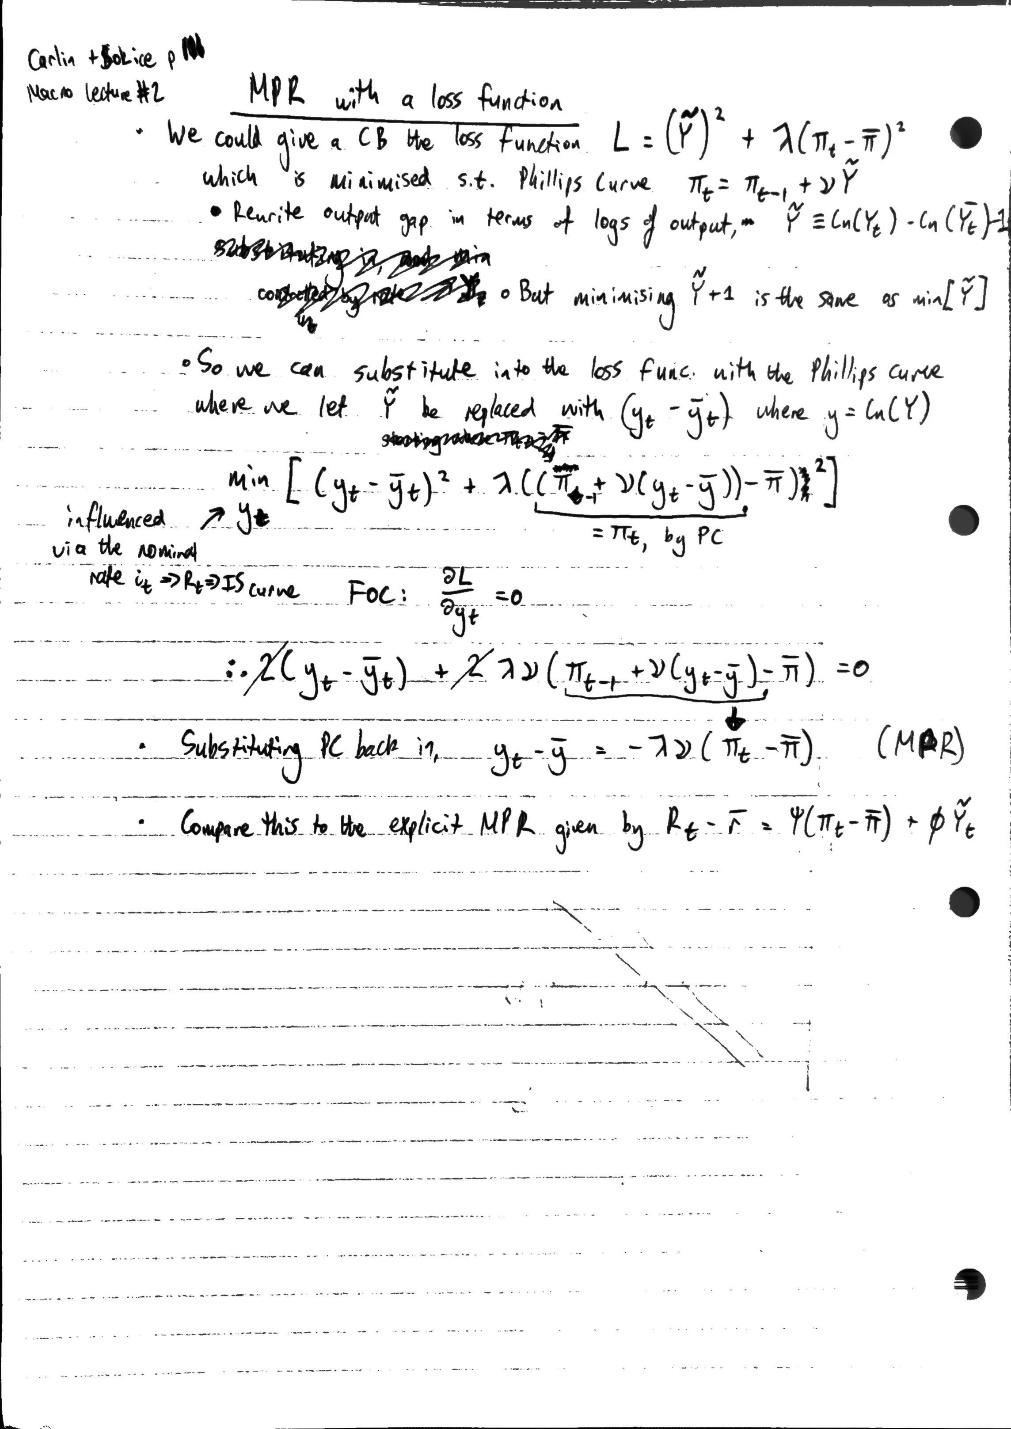 Carlin + Soskice p
Macro lecture #2
MPR with a loss function
• We could give a CB the loss function L = (Ỹ)² + λ(π_t - π̄)²
which is minimised s.t. Phillips Curve π_t = π_{t-1} + νỸ
• Rewrite output gap in terms of logs of output, Ỹ ≡ Ln(Y_t) - Ln(Ȳ_t) - 1
∘ But minimising Ỹ+1 is the same as min[Ỹ]
• So we can substitute into the loss func. with the Phillips curve
where we let Ỹ be replaced with (y_t - ȳ_t) where y = Ln(Y)
min [ (y_t - ȳ_t)² + λ((π_{t-1} + ν(y_t - ȳ)) - π̄)²]
y_t
= π_t, by PC
influenced
via the nominal
rate i_t ⇒ R_t ⇒ IS curve
FOC: ∂L/∂y_t = 0
∴ 2(y_t - ȳ_t) + 2λν(π_{t-1} + ν(y_t - ȳ) - π̄) = 0
• Substituting PC back in, y_t - ȳ = -λν(π_t - π̄) (MPR)
• Compare this to the explicit MPR given by R_t - r̄ = Ψ(π_t - π̄) + φỸ_t